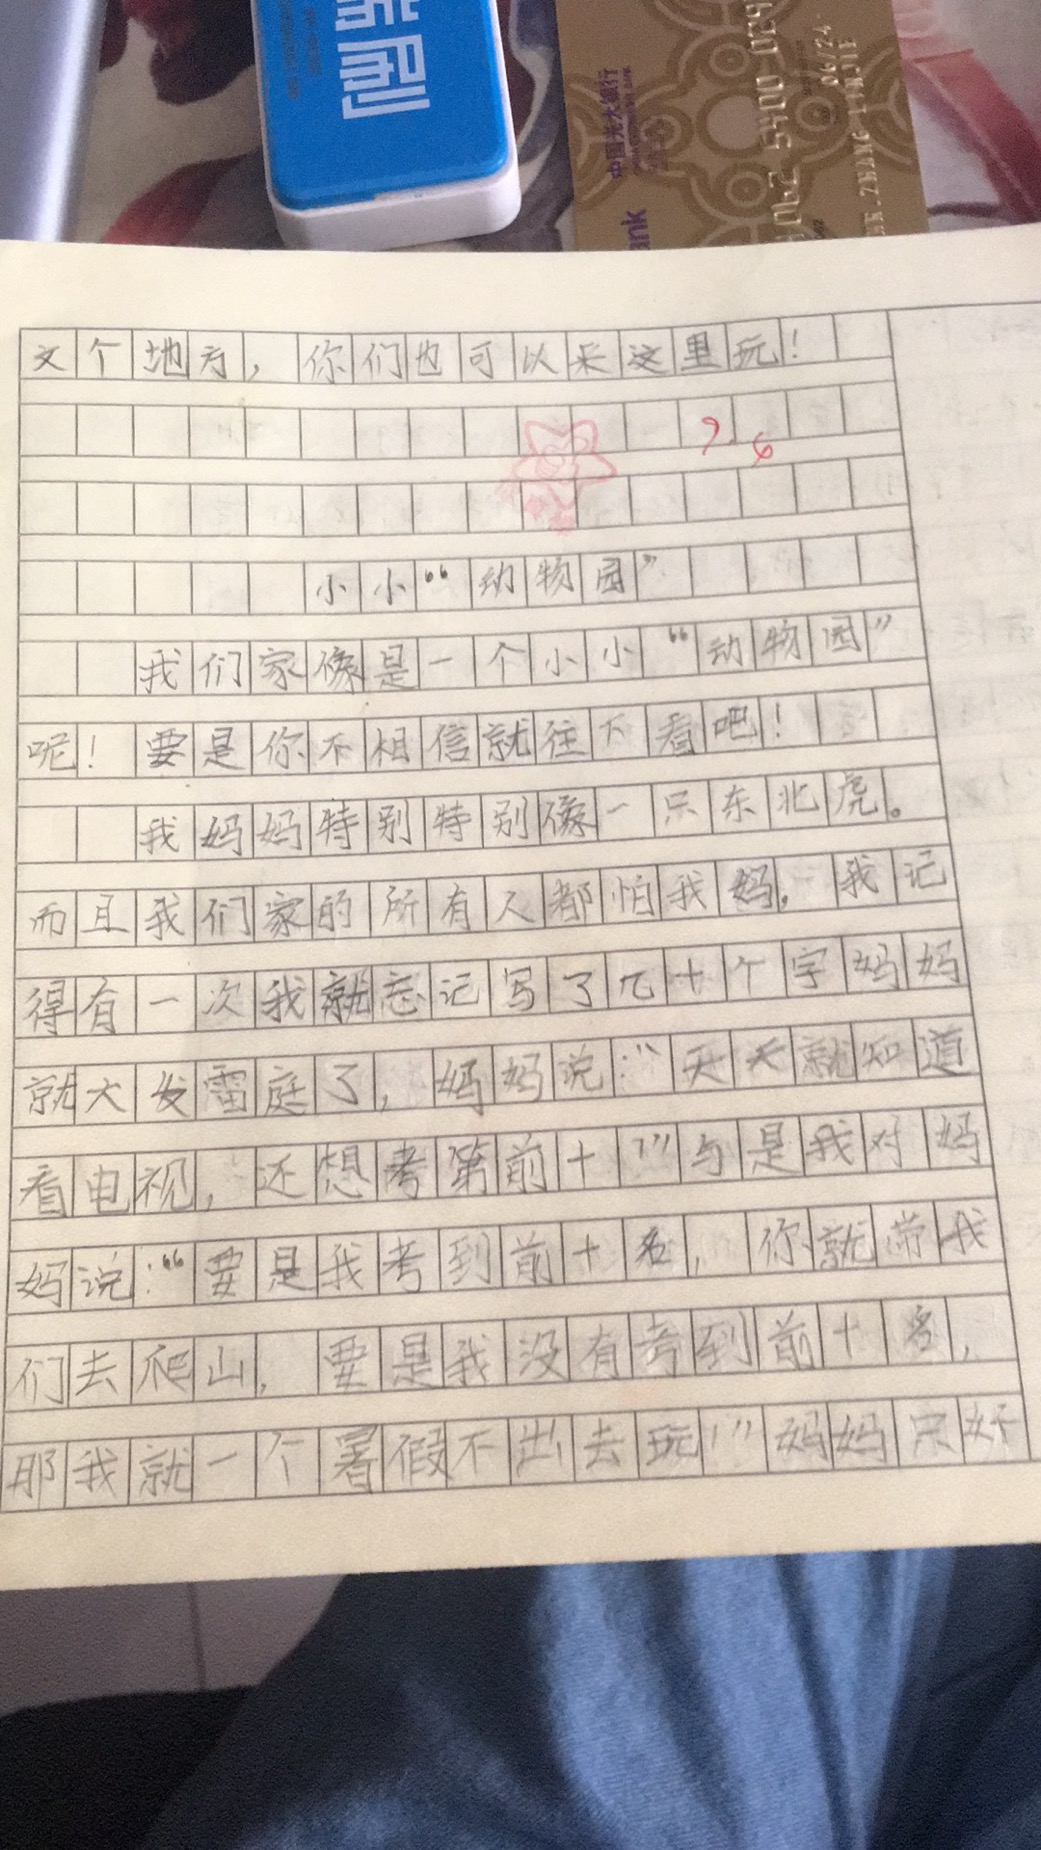 刷
中国光大银行
ank
062 5400 024
06/24
MR.ZHANG LINJIE
文个地方，你们也可以来这里玩！
9.6
小小“动物园”
我们家像是一个小小“动物园”
呢！要是你不相信就往下看吧！
我妈妈特别特别像一只东北虎。
而且我们家的所有人都怕我妈。我记
得有一次我就忘记写了几十个字妈妈
就大发雷庭了，妈妈说：“天天就知道
看电视，还想考第前十！”与是我对妈
妈说：“要是我考到前十名，你就带我
们去爬山，要是我没有考到前十名，
那我就一个暑假不出去玩！”妈妈只好